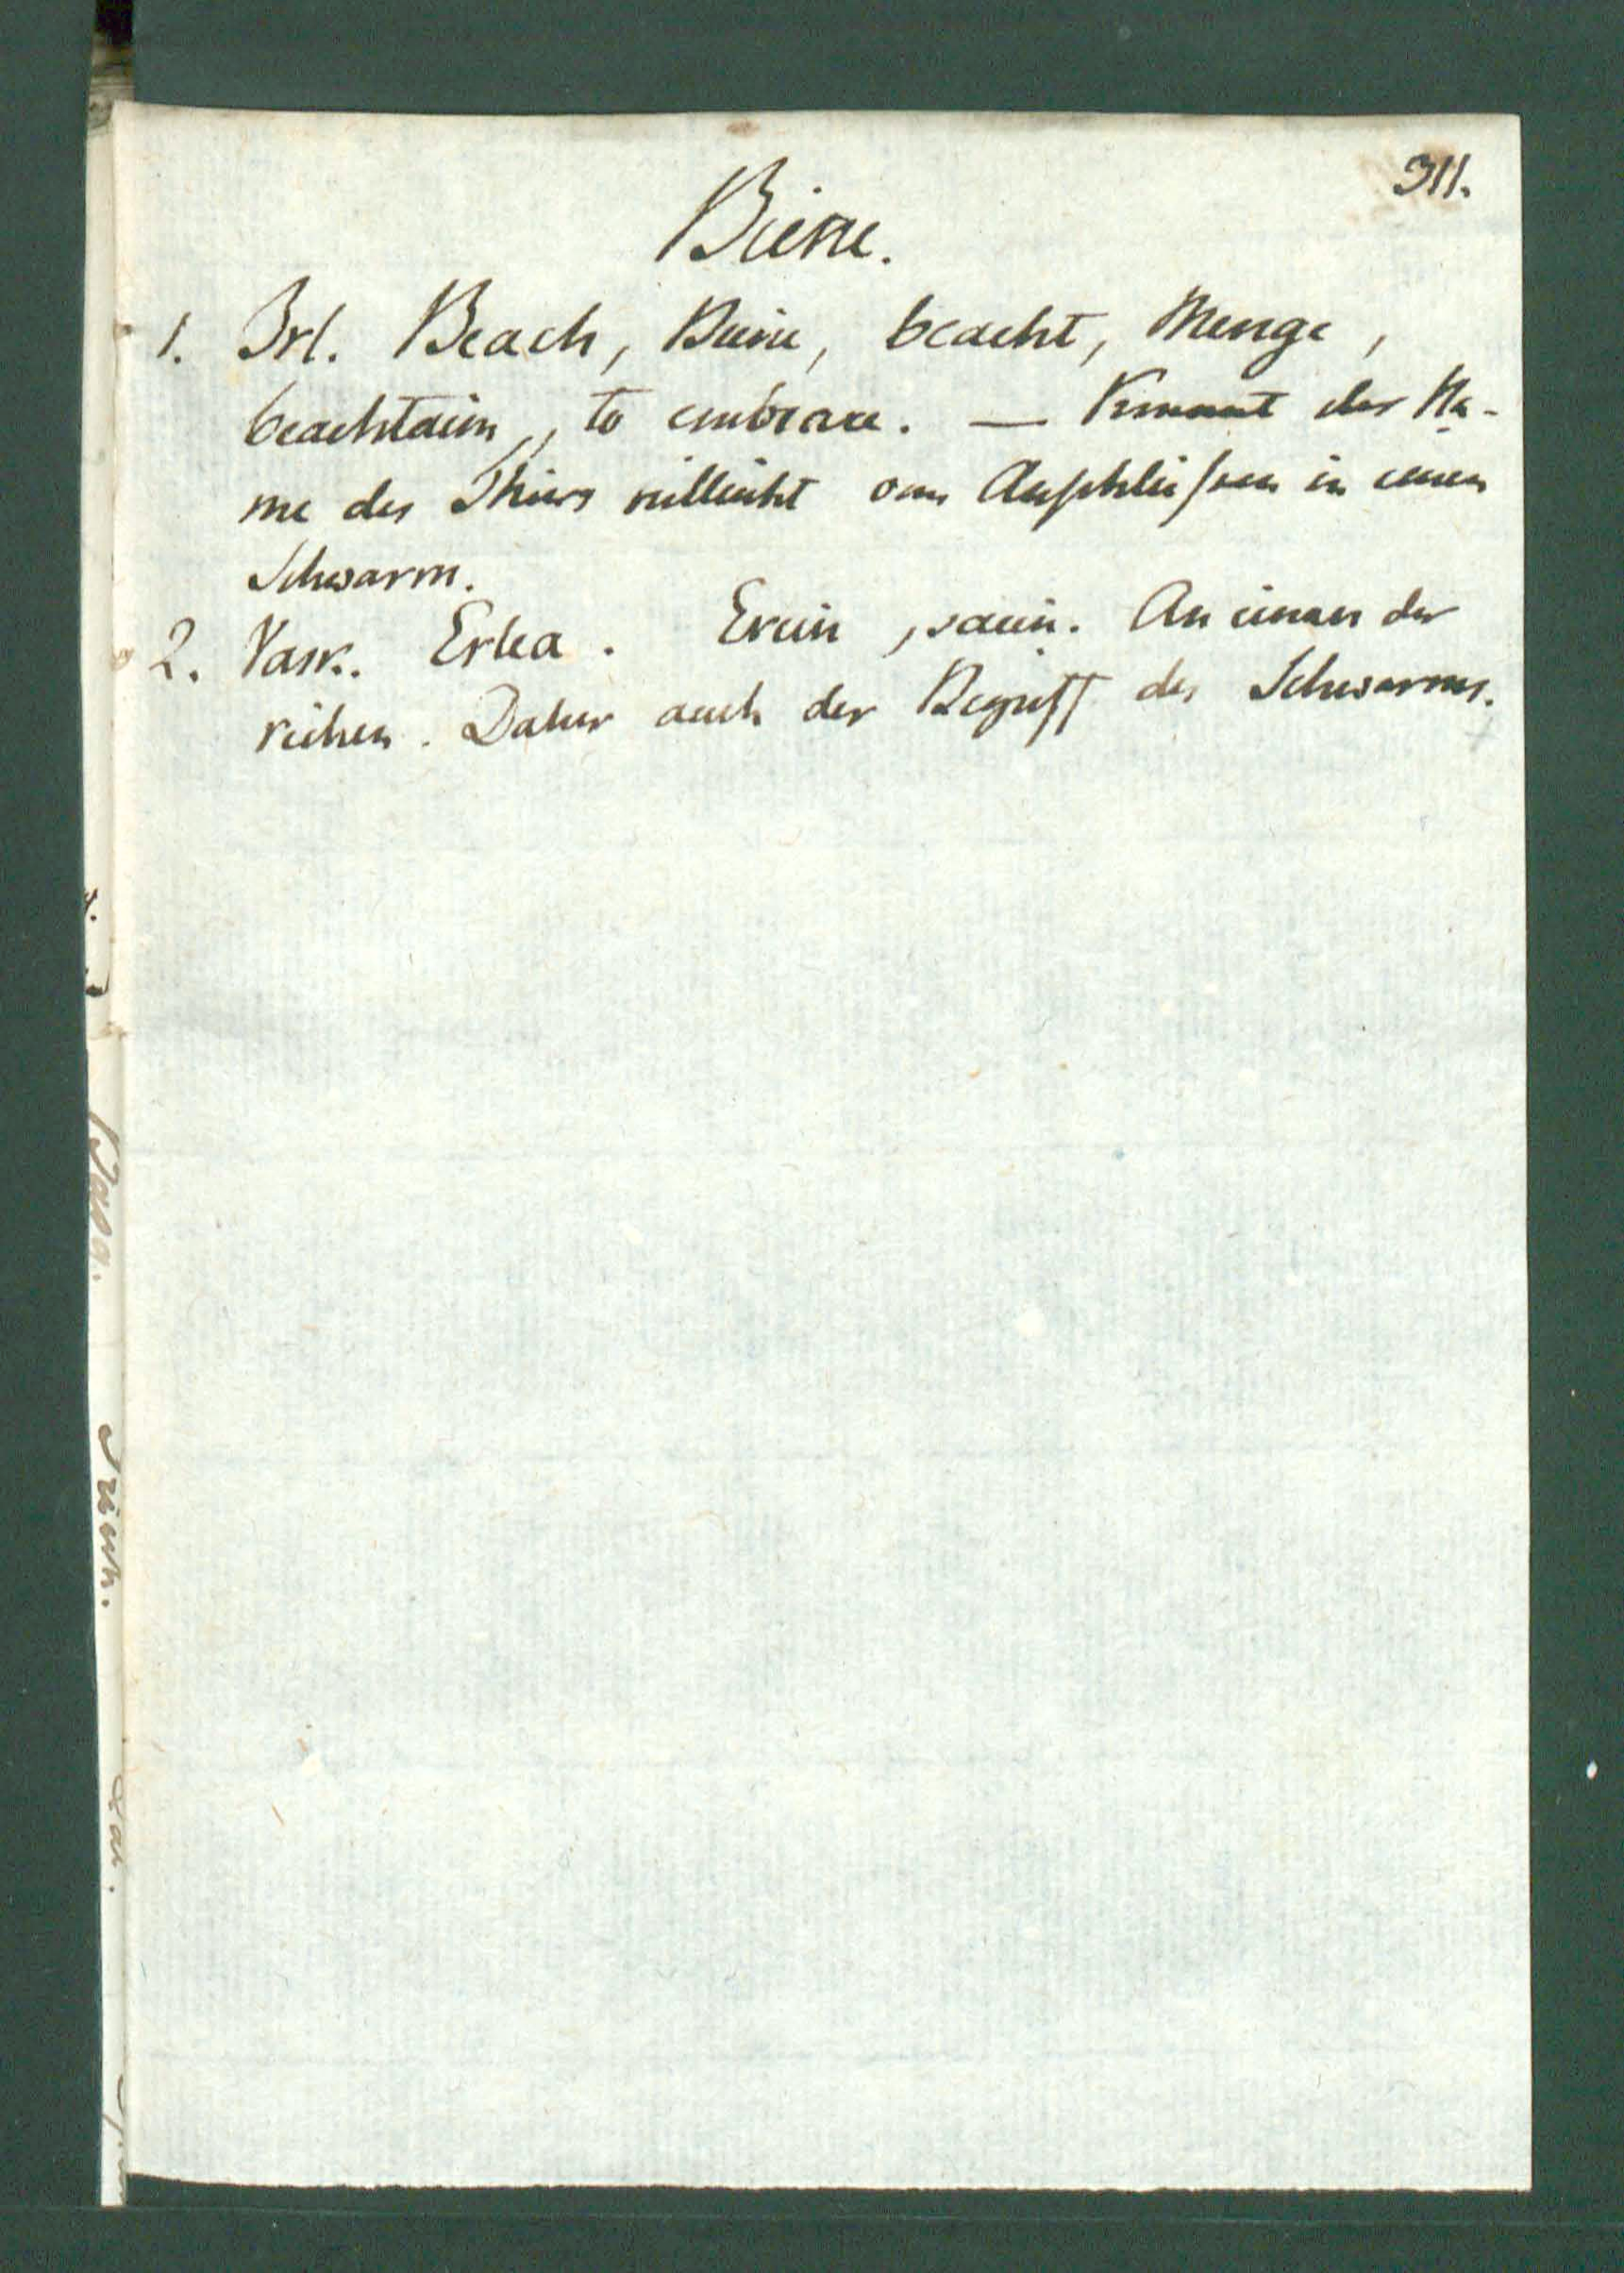 311.
Biene.
1. Irl. Beach, Biene, beacht, Menge,
beachtaim, to embrace. — Kommt der Na-
me des Thiers vielleicht vom Anschließen in einen
Schwarm.
2. Vask. Erlea. Erein, säein. An einander
reihen. Daher auch der Begriff des Schwarms.